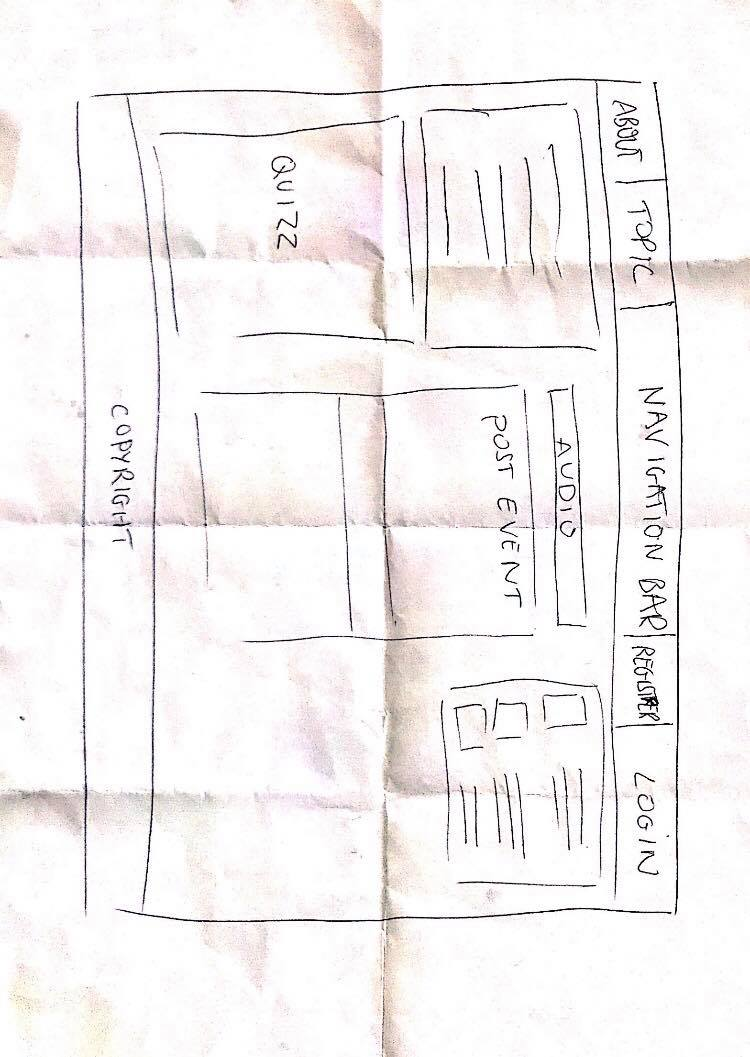 ABOUT TOPIC NAVIGATION BAR REGISTER LOGIN
AUDIO
POST EVENT
QUIZZ
COPYRIGHT